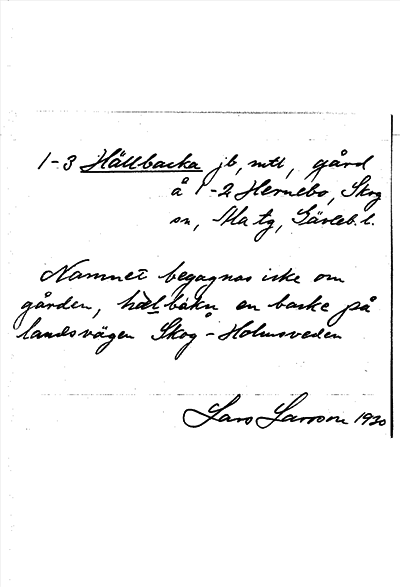 1-3 Hällbacka jb, mtl, gård
å 1-2 Hernebo, Skog
sn, Ala tg, Gävleb. l.
Namnet begagnas icke om
gården, hälbakn en backe på
landsvägen Skog - Holmsveden
Lars Larsson 1930